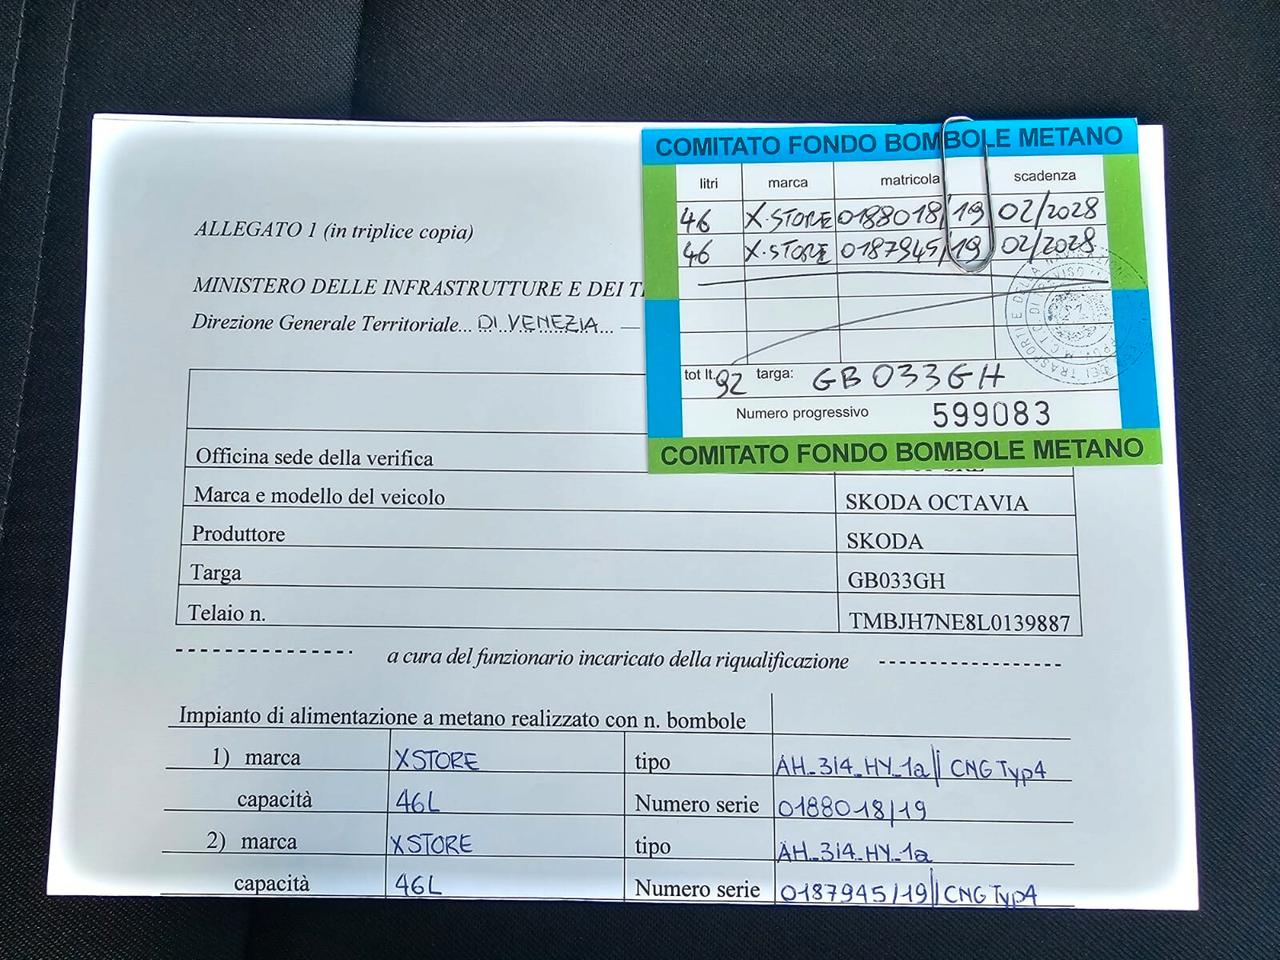 COMITATO FONDO BOMBOLE METANO
litri marca matricola scadenza
46 X-STORE 0188018/19 02/2028
46 X-STORE 0187945/19 02/2028
tot lt. 92 targa: GB033GH
Numero progressivo 599083
COMITATO FONDO BOMBOLE METANO
ALLEGATO 1 (in triplice copia)
MINISTERO DELLE INFRASTRUTTURE E DEI
Direzione Generale Territoriale... DI VENEZIA...
Officina sede della verifica
Marca e modello del veicolo SKODA OCTAVIA
Produttore SKODA
Targa GB033GH
Telaio n. TMBJH7NE8L0139887
a cura del funzionario incaricato della riqualificazione
Impianto di alimentazione a metano realizzato con n. bombole
1) marca XSTORE tipo AH_314_HY_1a || CNG Typ4
capacità 46L Numero serie 0188018/19
2) marca XSTORE tipo AH_314_HY_1a
capacità 46L Numero serie 0187945/19 || CNG Typ4